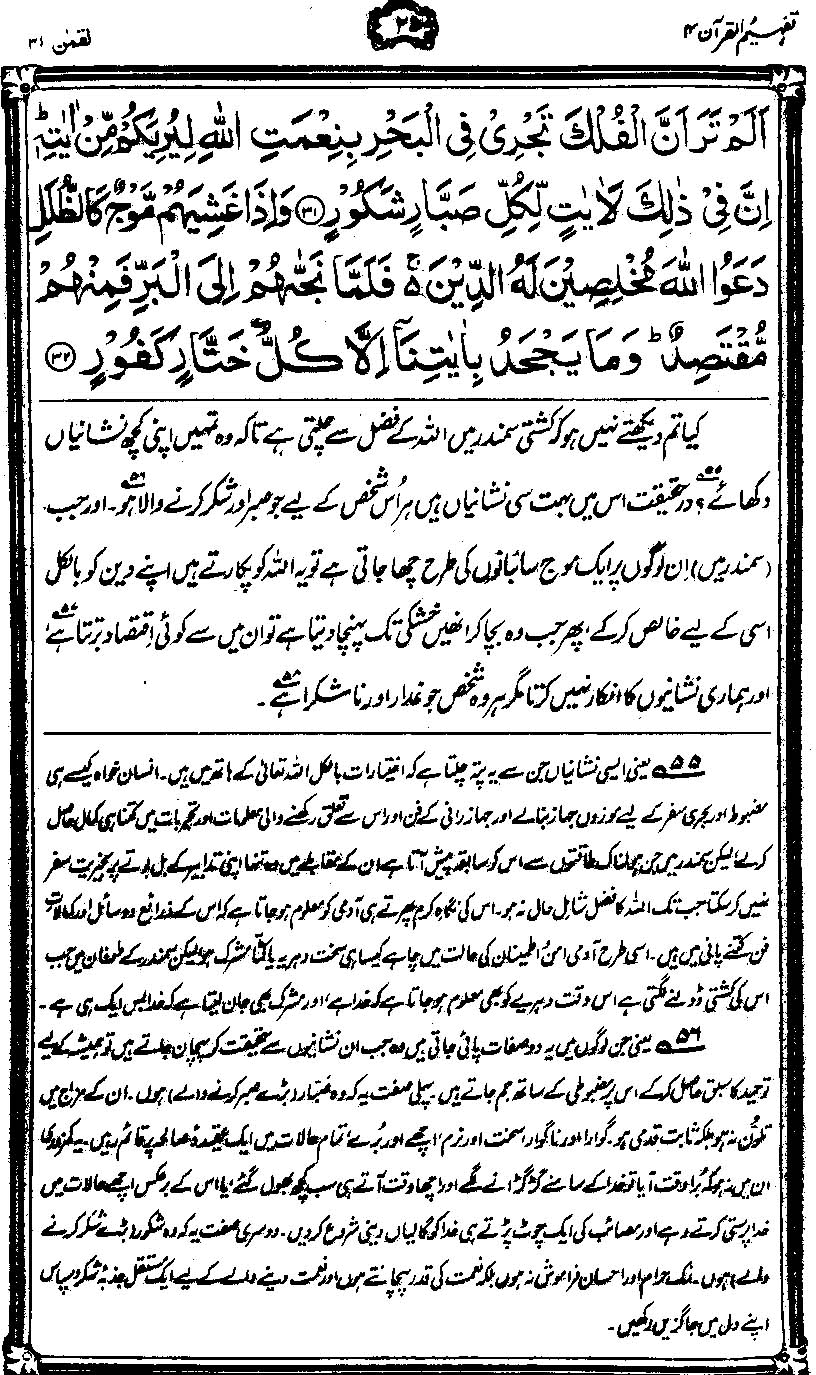 تفہیم القرآن ۴
لقمٰن ۳۱
اَلَمْ تَرَ اَنَّ الْفُلْكَ تَجْرِیْ فِی الْبَحْرِ بِنِعْمَتِ اللّٰهِ لِیُرِیَكُمْ مِّنْ اٰیٰتِهٖؕ
اِنَّ فِیْ ذٰلِكَ لَاٰیٰتٍ لِّكُلِّ صَبَّارٍ شَكُوْرٍ ۝۳۱ وَاِذَا غَشِیَهُمْ مَّوْجٌ كَالظُّلَلِ
دَعَوُا اللّٰهَ مُخْلِصِیْنَ لَهُ الدِّیْنَ ۚ۬ فَلَمَّا نَجّٰىهُمْ اِلَی الْبَرِّ فَمِنْهُمْ
مُّقْتَصِدٌ ؕ وَمَا یَجْحَدُ بِاٰیٰتِنَاۤ اِلَّا كُلُّ خَتَّارٍ كَفُوْرٍ ۝۳۲
کیا تم دیکھتے نہیں ہو کہ کشتی سمندر میں اللہ کے فضل سے چلتی ہے تاکہ وہ تمہیں اپنی کچھ نشانیاں
دکھائے ۵۵؟ درحقیقت اس میں بہت سی نشانیاں ہیں ہر اُس شخص کے لیے جو صبر اور شکر کرنے والا ہو ۵۶۔ اور جب
(سمندر میں) اِن لوگوں پر ایک موج سائبانوں کی طرح چھا جاتی ہے تو یہ اللہ کو پکارتے ہیں اپنے دین کو بالکل
اسی کے لیے خالص کر کے، پھر جب وہ بچا کر انھیں خشکی تک پہنچا دیتا ہے تو ان میں سے کوئی اِقتصاد برتتا ہے ۵۷،
اور ہماری نشانیوں کا انکار نہیں کرتا مگر ہر وہ شخص جو غدار اور ناشکرا ہے ۵۸۔
۵۵ یعنی ایسی نشانیاں جن سے یہ پتہ چلتا ہے کہ اختیارات بالکل اللہ تعالیٰ کے ہاتھ میں ہیں۔ انسان خواہ کیسے ہی
مضبوط اور بحری سفر کے لیے موزوں جہاز بنالے اور جہاز رانی کے فن اور اس سے تعلق رکھنے والی معلومات اور تجربات میں کتنا ہی کمال حاصل
کرلے، لیکن سمندر میں جن ہولناک طاقتوں سے اس کو سابقہ پیش آتا ہے ان کے مقابلے میں وہ تنہا اپنی تدابیر کے بل بوتے پر بخیریت سفر
نہیں کر سکتا جب تک اللہ کا فضل شاملِ حال نہ ہو۔ اس کی نگاہِ کرم پھرتے ہی آدمی کو معلوم ہو جاتا ہے کہ اس کے ذرائع و وسائل اور کمالاتِ
فن کتنے پانی میں ہیں۔ اسی طرح آدمی امن و اطمینان کی حالت میں چاہے کیسا ہی سخت دہریہ یا کٹّا مشرک ہو، لیکن سمندر کے طوفان میں جب
اس کی کشتی ڈولنے لگتی ہے اس وقت دہریے کو بھی معلوم ہو جاتا ہے کہ خدا ہے، اور مشرک بھی جان لیتا ہے کہ خدا بس ایک ہی ہے۔
۵۶ یعنی جن لوگوں میں یہ دو صفات پائی جاتی ہیں وہ جب ان نشانیوں سے حقیقت کو پہچان جاتے ہیں تو ہمیشہ کے لیے
توحید کا سبق حاصل کر کے اس پر مضبوطی کے ساتھ جم جاتے ہیں۔ پہلی صفت یہ کہ وہ صَبّار (بڑے صبر کرنے والے) ہوں۔ ان کے مزاج میں
تلوُّن نہ ہو بلکہ ثابت قدمی ہو۔ گوارا اور ناگوار، سخت اور نرم، اچھے اور بُرے، تمام حالات میں ایک عقیدۂ صالحہ پر قائم رہیں۔ یہ کمزوری
ان میں نہ ہو کہ بُرا وقت آیا تو خدا کے سامنے گڑگڑانے لگے اور اچھا وقت آتے ہی سب کچھ بھول گئے، یا اس کے برعکس اچھے حالات میں
خدا پرستی کرتے رہے اور مصائب کی ایک چوٹ پڑتے ہی خدا کو گالیاں دینی شروع کر دیں۔ دوسری صفت یہ کہ وہ شکور (بڑے شکر کرنے
والے) ہوں۔ نمک حرام اور احسان فراموش نہ ہوں بلکہ نعمت کی قدر پہچانتے ہوں اور نعمت دینے والے کے لیے ایک مستقل جذبۂ شکر و سپاس
اپنے دل میں جاگزیں رکھیں۔